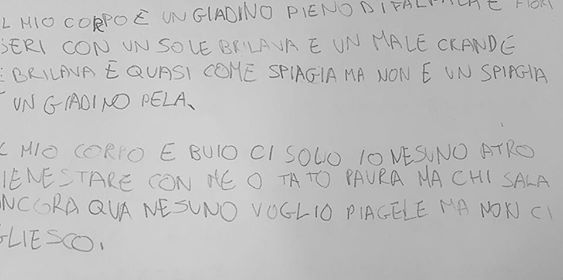 L MIO CORPO È UN GIADINO PIENO DI FALFALLE E FIORI
SERI CON UN SOLE BRILAVA E UN MALE GRANDE
E BRILAVA E QUASI COME SPIAGIA MA NON È UN SPIAGIA
UN GIADINO PELA.
L MIO CORPO E BUIO CI SOLO IO NESUNO ATRO
IENE STARE CON ME O TATO PAURA MA CHI SALA
NCORA QUA NESUNO VOGLIO PIAGELE MA NON CI
GLIESCO.